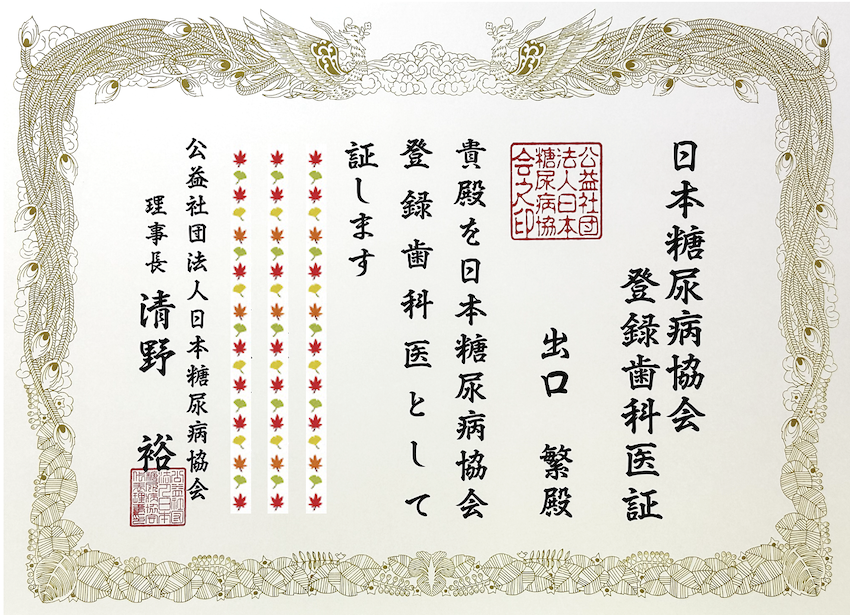 日本糖尿病協会
登録歯科医証
公益社団
法人日本
糖尿病協
会之印
出口 繁殿
貴殿を日本糖尿病協会
登録歯科医として
証します
公益社団法人日本糖尿病協会
理事長 清野 裕